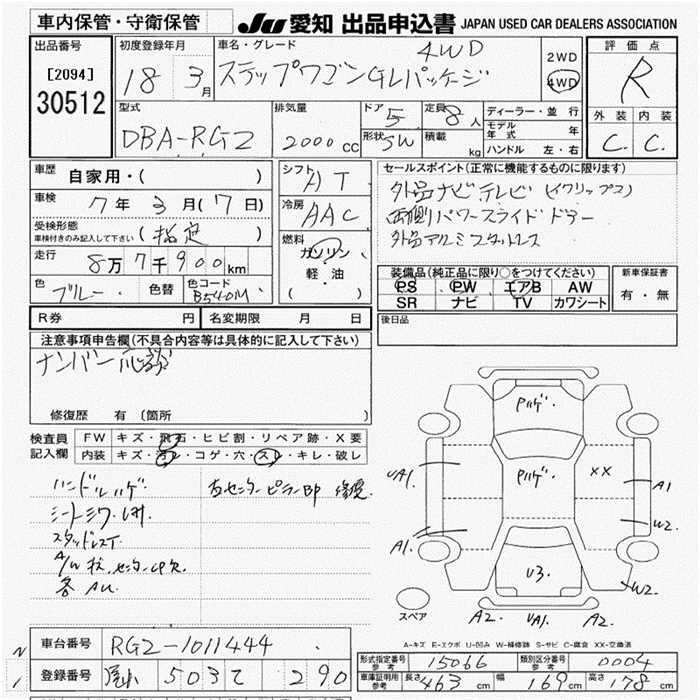 車内保管・守衛保管
JU 愛知 出品申込書 JAPAN USED CAR DEALERS ASSOCIATION
出品番号
[2094]
30512
初度登録年月
18 3月
車名・グレード
4WD
ステップワゴン GLパッケージ
2WD
4WD
評価点
R
外装 内装
C. C.
型式
DBA-RG2
排気量
2000 cc
ドア 5
形状 SW
定員 8人
積載 kg
ディーラー・並行
モデル年式 年
ハンドル 左・右
車歴
自家用・( )
車検 7年 3月(17日)
受検形態
車検付きのみ記入して下さい ( 指定 )
走行
8万7千900km
色 ブルー
色替
色コード B540M
シフト AT
冷房 AAC
燃料
ガソリン
軽・油
( )
セールスポイント(正常に機能するものに限ります)
外品ナビテレビ (イクリップス)
両側パワースライドドアー
外品アルミスタットレス
装備品(純正品に限り○をつけてください)
PS PW エアB AW
SR ナビ TV カワシート
新車保証書
有・無
後日品
R券 円
名変期限 月 日
注意事項申告欄(不具合内容等は具体的に記入して下さい)
ナンバー
修復歴 有 (箇所
検査員記入欄
FW キズ・飛石・ヒビ割・リペア跡・X要
内装 キズ・汚レ・コゲ・穴・スレ・キレ・破レ
ハンドルハゲ
右センターピラーBP 修復
シートシワ
スタッドレスT
各 AU
Pハゲ
Pハゲ
XX
UA1
A1
A1
W2
W2
U3
A2 UA1 A2
スペア
A-キズ E-エクボ U-凹み W-補修跡 S-サビ C-腐食 XX-交換済
車台番号 RG2-1011444
登録番号 503 て 290
形式指定番号 参考 15066
類別区分番号 参考 0004
車庫証明用参考 長さ 463 cm 幅 169 cm 高さ 178 cm